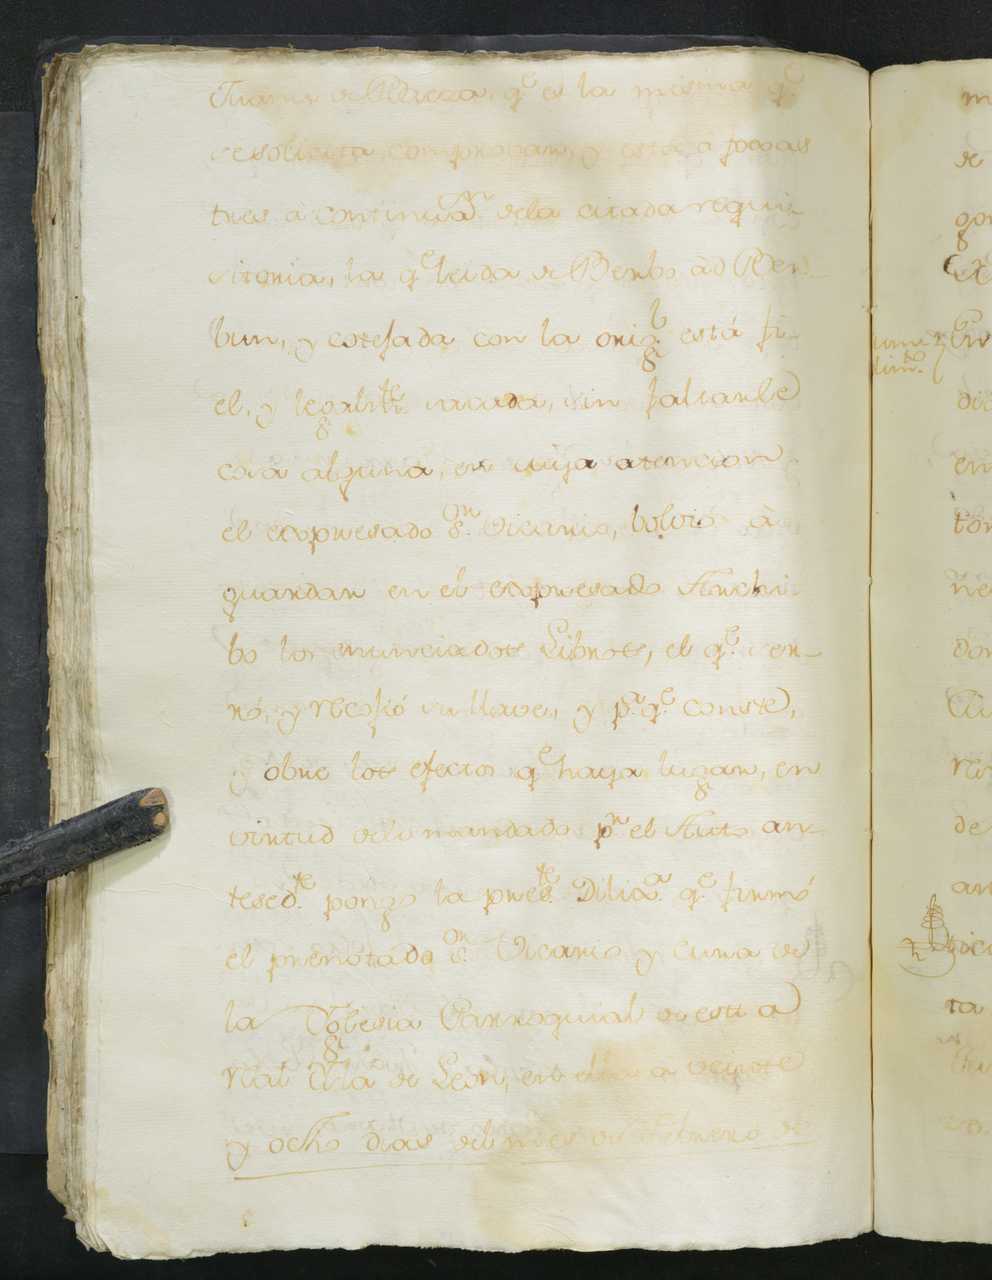 de Alderera, q.^e es la misma q.^e
se solicita comprobar, y está a foxas
tres à continua.^n dela citada requi-
sitoria, la q.^e leida de Berbo ad Ber-
bum, y cotejada con la orig.^l está fi-
el, y legalm.^te sacada, sin faltarle
cosa alguna, en cuya atencion
el expresado S.^or Vicario, bolvió à
guardar en el expresado Archi
bo los enunciados Libros, el q.^e cer-
ró, y recojió su llave, y p.^a q.^e conste,
y obre los efectos q.^e haya lugar, en
virtud delo mandado p.^r el Auto an-
tesed.^te pongo la pres.^te Dilig.^a q.^e firmó
el prenotado S.^or Vicario y cura de
la Yglesia Parroquial de esta
Real Ysla de Leon, en ella a veinte
y ocho dias del mes de Febrero de